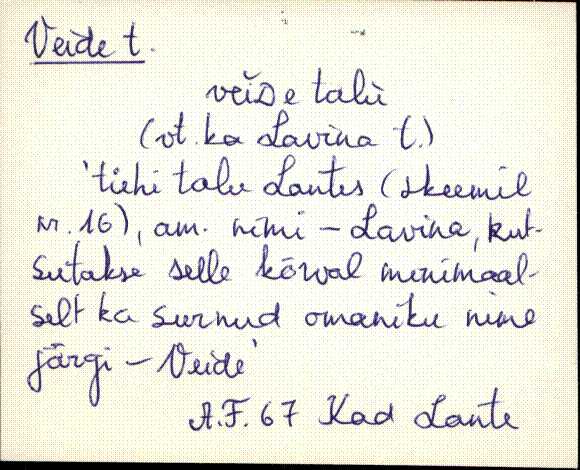 Veide t.
veiᴅe talù
(vt. ka Lavina t.)
'tühi talu Lantes (skeemil
nr. 16), am. nimi – Lavina, kut-
sutakse selle kõrval minimaal-
selt ka surnud omaniku nime
järgi – Veide'
A.F. 67 Kad Lante